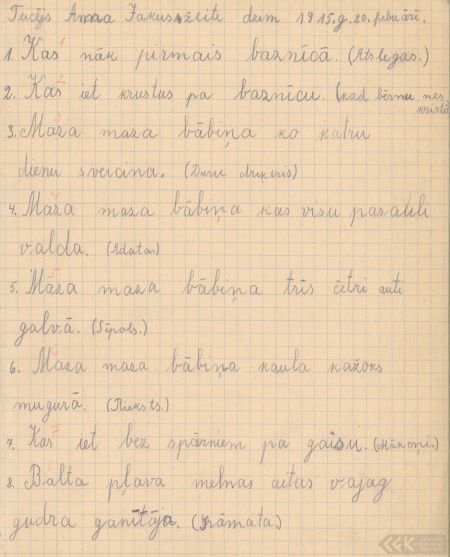 Teicējs Anna Jakusžīte dzim 1915.g. 20. febuārī.
1. Kas nāk pirmais baznīcā. (Atslēgas.)
2. Kas iet krustus pa baznīcu. (kad bērnu nes
kristī
3. Maza maza bābiņa ko katru
dienu sveicina. (Duru druķeris)
4. Maza maza bābiņa kas visu pasauli
valda. (Adata)
5. Maza maza bābiņa trīs četri auti
galvā. (Sīpols.)
6. Maza maza bābiņa kaula kažoks
mugurā. (Rieksts.)
7. Kas iet bez spārniem pa gaisu. (Mākoņi.)
8. Balta pļava melnas aitas vajag
gudra ganītāja. (Grāmata.)